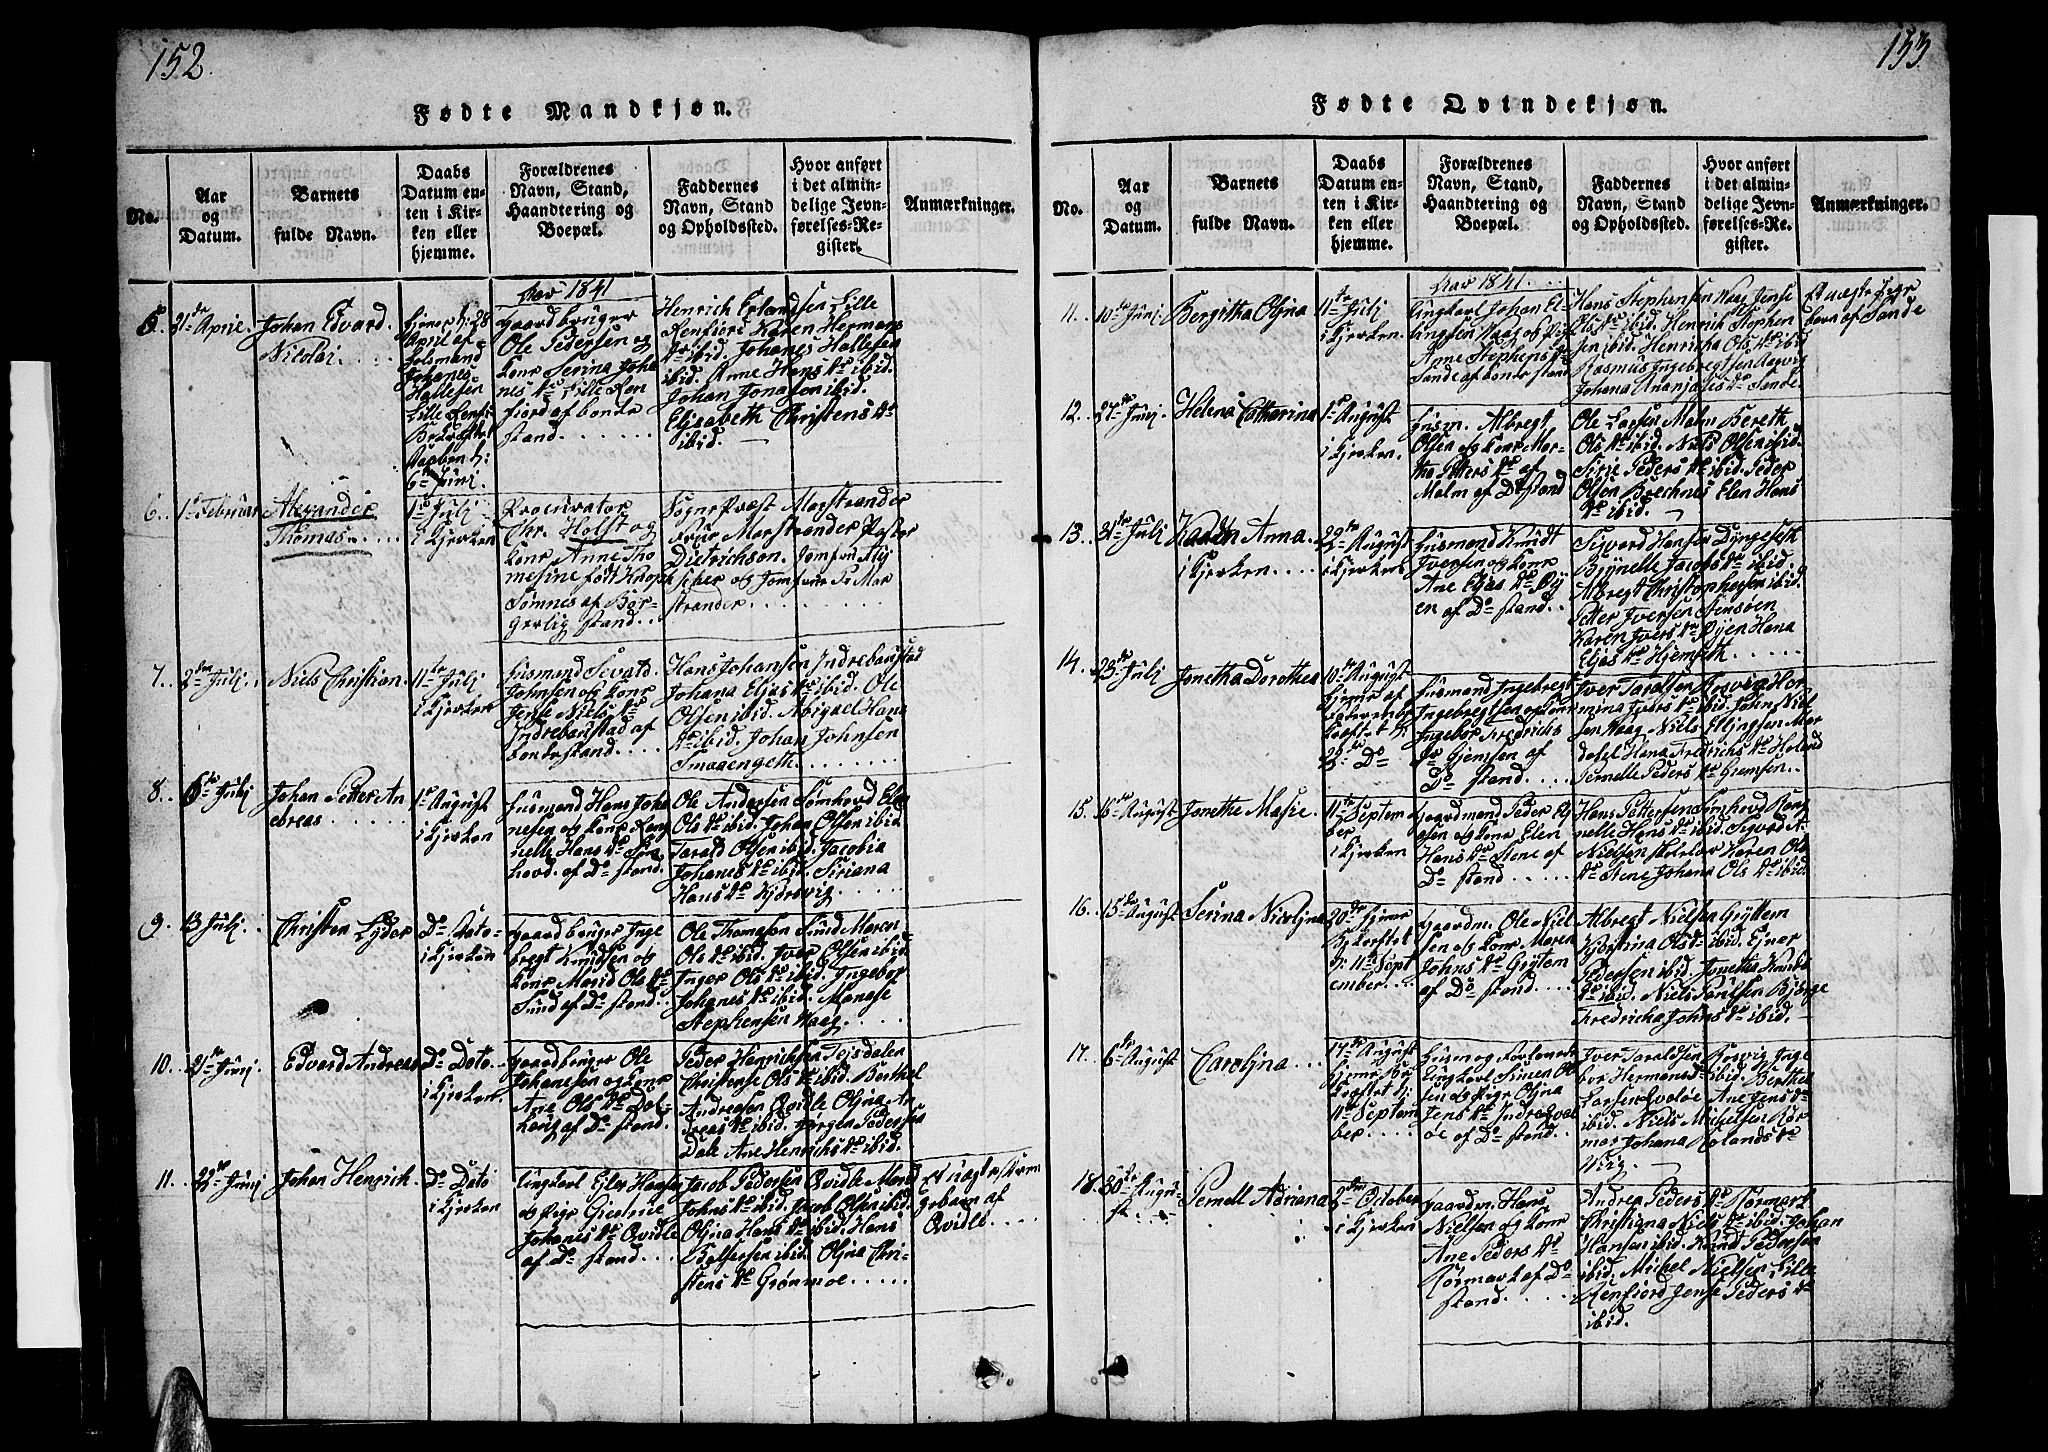 152
Fødte Mandkjøn.
No.
Aar
og
Datum.
Barnets
fulde Navn.
Daabs
Datum en-
ten i Kir-
ken eller
hjemme.
Forældrenes
Navn, Stand,
Haandtering og
Boepæl.
Faddernes
Navn, Stand
og Opholdssted.
Hvor anført
i det almin-
delige Jevn-
førelses-Re-
gister.
Anmærkninger.
Aar 1841
5.
21de April.
Johan Edvard
Nicolai.
April af
Johanes
Hallesen
6te Juni.
Gaardbruger
Ole Pedersen og
Kone Serina Joha
nes Dr Lille Ren
fiord af bonde
stand.
Henrich Erlandsen Lille
Renfiord Karen Hermans
Dr ibid. Johanes Hallesen
ibid. Anne Hans Dr ibid.
Johan Jonason ibid.
Elisabeth Christens Dr
ibid.
6.
1te Februar
Alexander
Thomas.
1te Juli
i Kjerken
Procurator
Chr. Holst og
Kone Anne Tho
mesine født Knoph
Sømnes af Bor-
gerlig stand.
Sogne Præst Marstrander
Frue Marstrander Pastor
Dietrichson. Jomfru Fi
scher og Jomfrue Mar
strander.
7.
2den Juli.
Niels Christian.
11te Juli
i Kjerken
Husmand Sivert
Johnsen og Kone
Jense Niels Dr
Indrebaustad af
bondestand.
Hans Johansen Indrebaustad
Johana Eljas Dr ibid. Ole
Olsen ibid. Abigael Hans
Dr ibid. Johan Johnsen
Smaaengeth.
8.
6te Juli
Johan Petter An
dreas
1te August
i Kjerken
Husmand Hans Joha
nesen og Kone
nelle Hans Dr Søm
hovd. af Do stand.
Ole Andersen Sømhovd
Ols Dr ibid. Johan Olsen ibid.
Tarald Olsen ibid. Jacobia
Johanes Dr ibid. Siriana
Hans Dr Kjørsvig
9.
13 Juli.
Christen Lyder
Do Dato
i Kjerken
Gaardbruger Inge
bregt Knudsen og
Kone Marid Ols Dr
Sund af Do stand.
Ole Thomasen Sund Maren
Ols Dr ibid. Iver Olsen ibid.
Inger Ols Dr ibid. Ingebor
Johanes Dr ibid. Manase
Stephensen Waag.
10.
21de Junj.
Edvard Andreas
Do Dato
i Kjerken
Gaardbruger Ole
Johansen og Kone
Ane Ols Dr Dal-
houg af Do stand.
Peder Henrichsen Tojsdalen
Christense Ols Dr ibid. Berthel
Andreasen Qvidle Oljna An
dreas Dr ibid. Jørgen Pedersen
Dale Ane Henrichs Dr ibid.
11.
22de Junj
Johan Henrich
Do Dato
i Kjerken
Ungkarl Ejler Hansen
og Pige
Johanes Dr Qvidle
af Do stand.
Jacob Pedersen Qvidle
Johns Dr ibid. Jacob Olsen ibid.
Oljna Hans Dr ibid Hans
Baltsersen ibid. Oljna Chri-
stens Dr Grønmoe.
Et uægte Barn
af
Qvidle

153
Fødte Qvindekjøn.
No.
Aar
og
Datum.
Barnets
fulde Navn.
Daabs
Datum en-
ten i Kir-
ken eller
hjemme.
Forældrenes
Navn, Stand,
Haandtering og
Boepæl.
Faddernes
Navn, Stand
og Opholdssted.
Hvor anført
i det almin-
delige Jevn-
førelses-Re-
gister.
Anmærkninger.
Aar 1841.
11.
10de Junj
Bergitha Oljna
11te Julj
i Kjerken.
Ungkarl Johan El
lingsen Waag og Pige
Anne Stephens Dr
Sande af bonde stand
Hans Stephensen Waag Jense
Ols Dr ibid. Henrich Stephen
sen ibid. Henricha Ols Dr ibid
Rasmus Ingebregtsen
Johana Ananjas Dr Sande
Et uægte
af Sande
12.
27de Junj
Helena Catharina
1te August
i Kjerken.
Husm. Albregt
Olsen og Kone Mar-
tha Petters Dr af
Malm af Do stand
Ole Larsen Malm Bereth
Ols Dr ibid. Niels Olsen ibid.
Sirie Peders Dr ibid. Peder
Olsen Brechnes Elen Hans
Dr ibid.
13.
31te Julj
Karen Anna.
i Kjerken.
29de August
i Kjerken
Husmand Knudt
Iversen og Kone
Ane Eljas Dr Øj
en af Do stand.
Sivard Hansen Dyngeseth
Jacobs Dr ibid.
Albregt Christophersen ibid.
Petter Iversen Stensøen
Karen Ivers Dr Øjen Hana
Eljas Dr Hjemseth
14.
23de Julj
Jonetha Dorothea
10de August
hjeme af
23de Do
Husmand Ingebregt
Ingebregtsen og Kone
Ingebor Fredrichs
Dr Gjemsen af
Do stand.
Iver Taraldsen Horsvig Hor
mina Ivers Dr ibid. John Niel
sen Waag Niels Ellingsen Mar
dalel Hana Fredrichs Dr Holand
Pernelle Peders Dr Gremsen.
15.
16de August
Jonette Masie.
11te Septem
ber
i Kjerken
Gaardmand Peder Ol
esen og Kone Elen
Hans Dr Stene af
Do stand
Hans Pettersen Sømhovd
nelle Hans Dr ibid. Sigvard A.
Nielsen skolelær Karen Ols
Dr Stene Johana Ols Dr ibid.
16.
15de August
Serina Nicoljna
20de hjeme
Bekræftet
11te Sept
ember.
Gaardm. Ole Niel
sen og Kone Maren
Johns Dr Grytem
af Do stand.
Albregt Nielsen Gryttem
Kjerstina Ols Dr ibid. Ejner
Pedersen ibid. Jonetha Knuds
Dr ibid. Niels Poulsen Bjørge
Fredricha Johns Dr ibid.
17.
6te August
Caroljna
17de August
hjeme Be
kræftet d:
11te Septem
ber.
Ungkarl Simen Ol
sen og Pige Oljna
Jens Dr Indreqval
øe af Do stand.
Iver Taraldsen Horsvig Inge
bor Hermans Dr ibid. Berthel
Larsen Qvaløe Ane Jens Dr
ibid. Niels Michelsen Rør
mark Johana Rolands Dr
Wiig.
18.
30te Augu-
st.
Pernell Adriana
3die October
i Kjerken
Gaardm. Hans
Nielsen og Kone
Ane Peders Dr
Rørmark af Do
stand.
Andrea Peders Dr Rørmark
Christiana Niels Dr ibid. Johan
Hansen ibid. Knud Pedersen
ibid. Michel Nielsen Lille
Renfiord Jense Peders Dr
ibid.